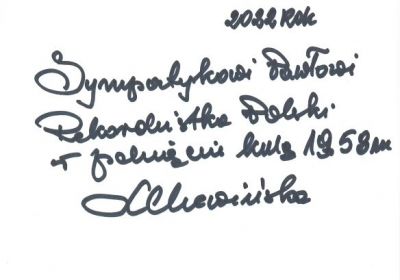 2022 Rok
Sympatykowi Pawłowi
Rekordzistka Polski
w pchnięciu kulą 19.58 m
LChewińska